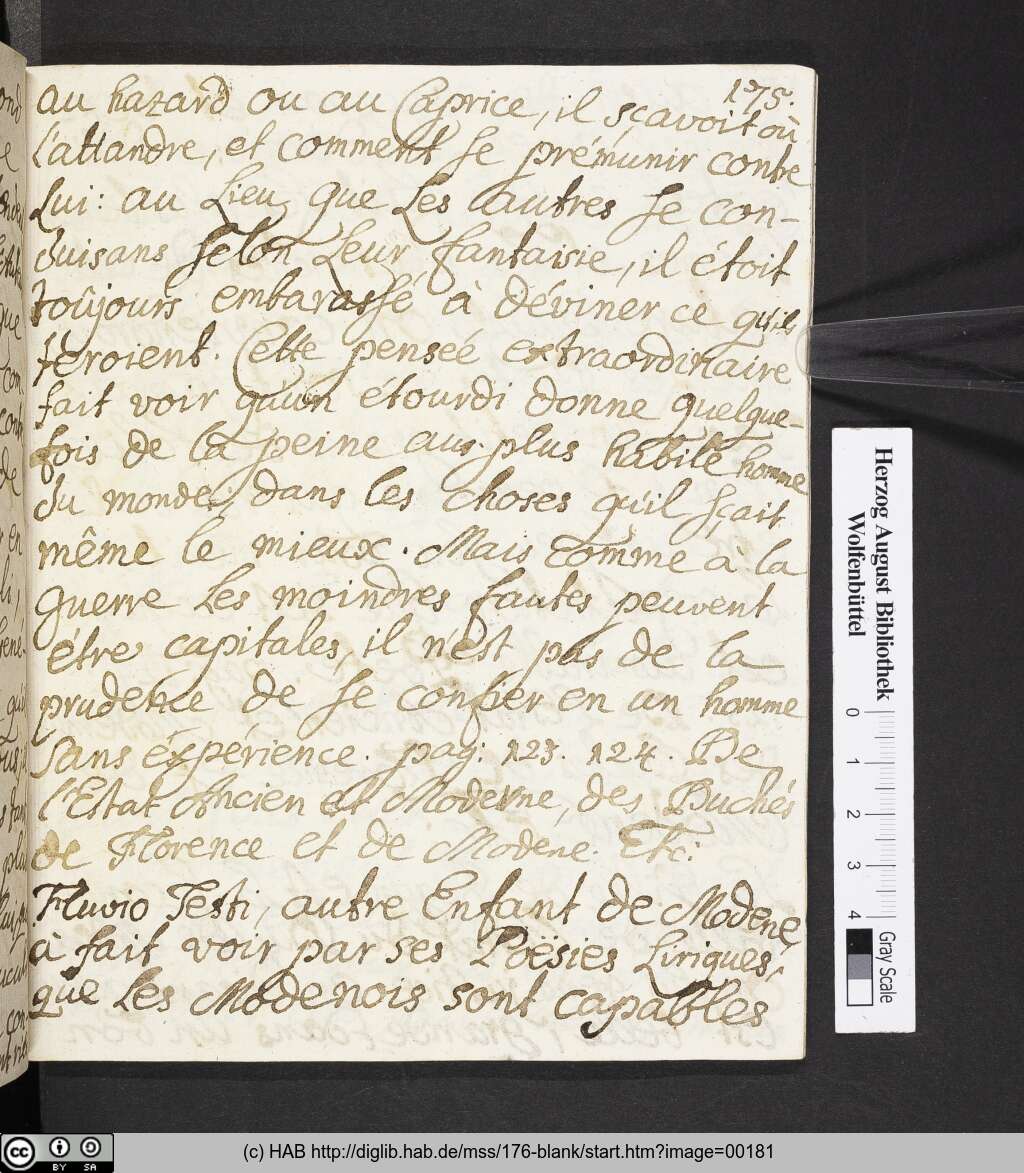 175.
au hazard ou au Caprice, il sçavoit où
l'attandre, et comment se prémunir contre
Lui: au Lieu que Les autres se con-
duisans selon Leur fantaisie, il étoit
toûjours embarassé à déviner ce qu'ils
feroient. Cette penseé extraordinaire
fait voir qu'un étourdi donne quelque-
fois de la peine aus plus habile homme
du monde, dans les choses qu'il sçait
même le mieux. Mais comme à la
guerre Les moindres fautes peuvent
étre capitales, il n'est pas de la
prudence de se confier en un homme
sans éxpérience. pag: 123. 124. De
l'Estat Ancien et Moderne, des Duchés
de Florence et de Modene. Etc:
Fluvio Testi, autre Enfant de Modene,
à fait voir par ses Poësies Liriques,
que Les Modenois sont capables
Herzog August Bibliothek
Wolfenbüttel
0 1 2 3 4
Gray Scale
cc BY SA
(c) HAB http://diglib.hab.de/mss/176-blank/start.htm?image=00181